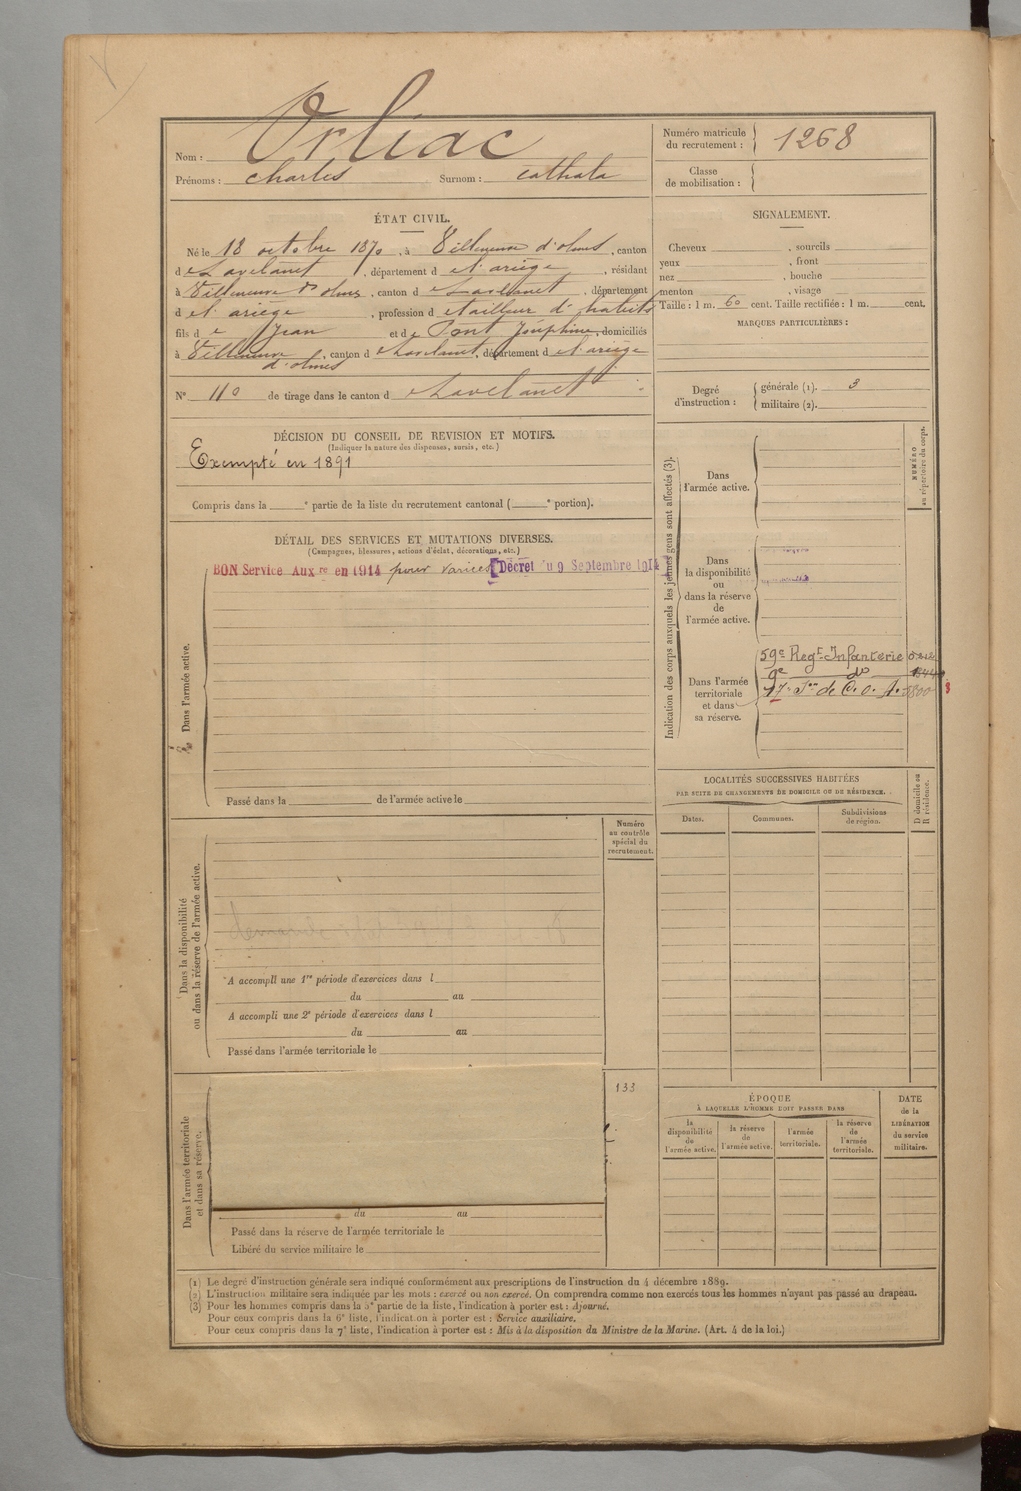 Nom : Orliac
Prénoms : charles Surnom : cathala
Numéro matricule du recrutement : 1268
Classe de mobilisation :
ÉTAT CIVIL.
Né le 18 octobre 1870, à Villeneuve d'olmes, canton
de Lavelanet, département de l'ariège, résidant
à Villeneuve d'olmes, canton de Lavelanet, département
de l'ariège, profession de tailleur d'habits
fils de Jean et de Pont Joséphine, domiciliés
à Villeneuve d'olmes, canton de Lavelanet, département de l'ariège
N° 110 de tirage dans le canton de Lavelanet
SIGNALEMENT.
Cheveux , sourcils
yeux , front
nez , bouche
menton , visage
Taille : 1 m. 60 cent. Taille rectifiée : 1 m. cent.
MARQUES PARTICULIÈRES :
Degré d'instruction : générale (1). 3
militaire (2).
DÉCISION DU CONSEIL DE REVISION ET MOTIFS.
(Indiquer la nature des dispenses, sursis, etc.)
Exempté en 1891
Compris dans la e partie de la liste du recrutement cantonal ( e portion).
DÉTAIL DES SERVICES ET MUTATIONS DIVERSES.
(Campagnes, blessures, actions d'éclat, décorations, etc.)
BON Service Aux re en 1914 pour varices Décret du 9 Septembre 1914
Dans l'armée active.
Passé dans la de l'armée active le
Indication des corps auxquels les jeunes gens sont affectés (3).
NUMÉRO au répertoire du corps.
Dans l'armée active.
Dans la disponibilité ou dans la réserve de l'armée active.
Dans l'armée territoriale et dans sa réserve.
59e Regt Infanterie
9e do
17e Son de C. O. A.
LOCALITÉS SUCCESSIVES HABITÉES
PAR SUITE DE CHANGEMENTS DE DOMICILE OU DE RÉSIDENCE.
Dates. Communes. Subdivisions de région. D domicile ou R résidence.
Dans la disponibilité ou dans la réserve de l'armée active.
Numéro au contrôle spécial du recrutement.
A accompli une 1re période d'exercices dans l
du au
A accompli une 2e période d'exercices dans l
du au
Passé dans l'armée territoriale le
Dans l'armée territoriale et dans sa réserve.
133
du au
Passé dans la réserve de l'armée territoriale le
Libéré du service militaire le
ÉPOQUE
À LAQUELLE L'HOMME DOIT PASSER DANS
la disponibilité de l'armée active. la réserve de l'armée active. l'armée territoriale. la réserve de l'armée territoriale.
DATE de la LIBÉRATION du service militaire.
(1) Le degré d'instruction générale sera indiqué conformément aux prescriptions de l'instruction du 4 décembre 1889.
(2) L'instruction militaire sera indiquée par les mots : exercé ou non exercé. On comprendra comme non exercés tous les hommes n'ayant pas passé au drapeau.
(3) Pour les hommes compris dans la 5e partie de la liste, l'indication à porter est : Ajourné.
Pour ceux compris dans la 6e liste, l'indication à porter est : Service auxiliaire.
Pour ceux compris dans la 7e liste, l'indication à porter est : Mis à la disposition du Ministre de la Marine. (Art. 4 de la loi.)